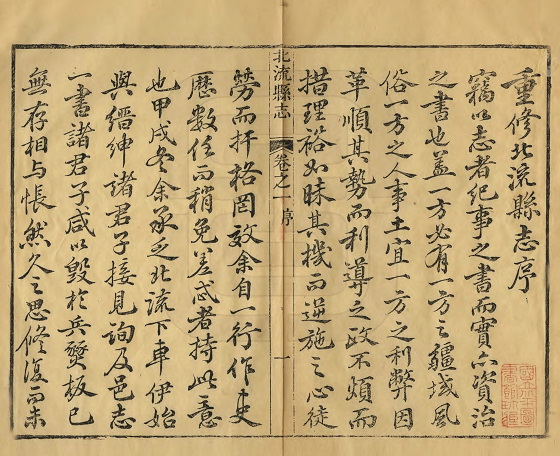 重修北流縣志序
竊以志者紀事之書而實亦資治
之書也蓋一方必有一方之疆域風
俗一方之人事土宜一方之利弊因
革順其勢而利導之政不煩而
措理裕如昧其機而逆施之心徒
北流縣志 卷之一 序 一
勞而扞格罔效余自一行作吏
歷數任而稍免差忒者持此意
也甲戌冬余承乏北流下車伊始
與縉紳諸君子接見詢及邑志
一書諸君子咸以毀於兵燹板已
無存相与悵然久之思修復而未